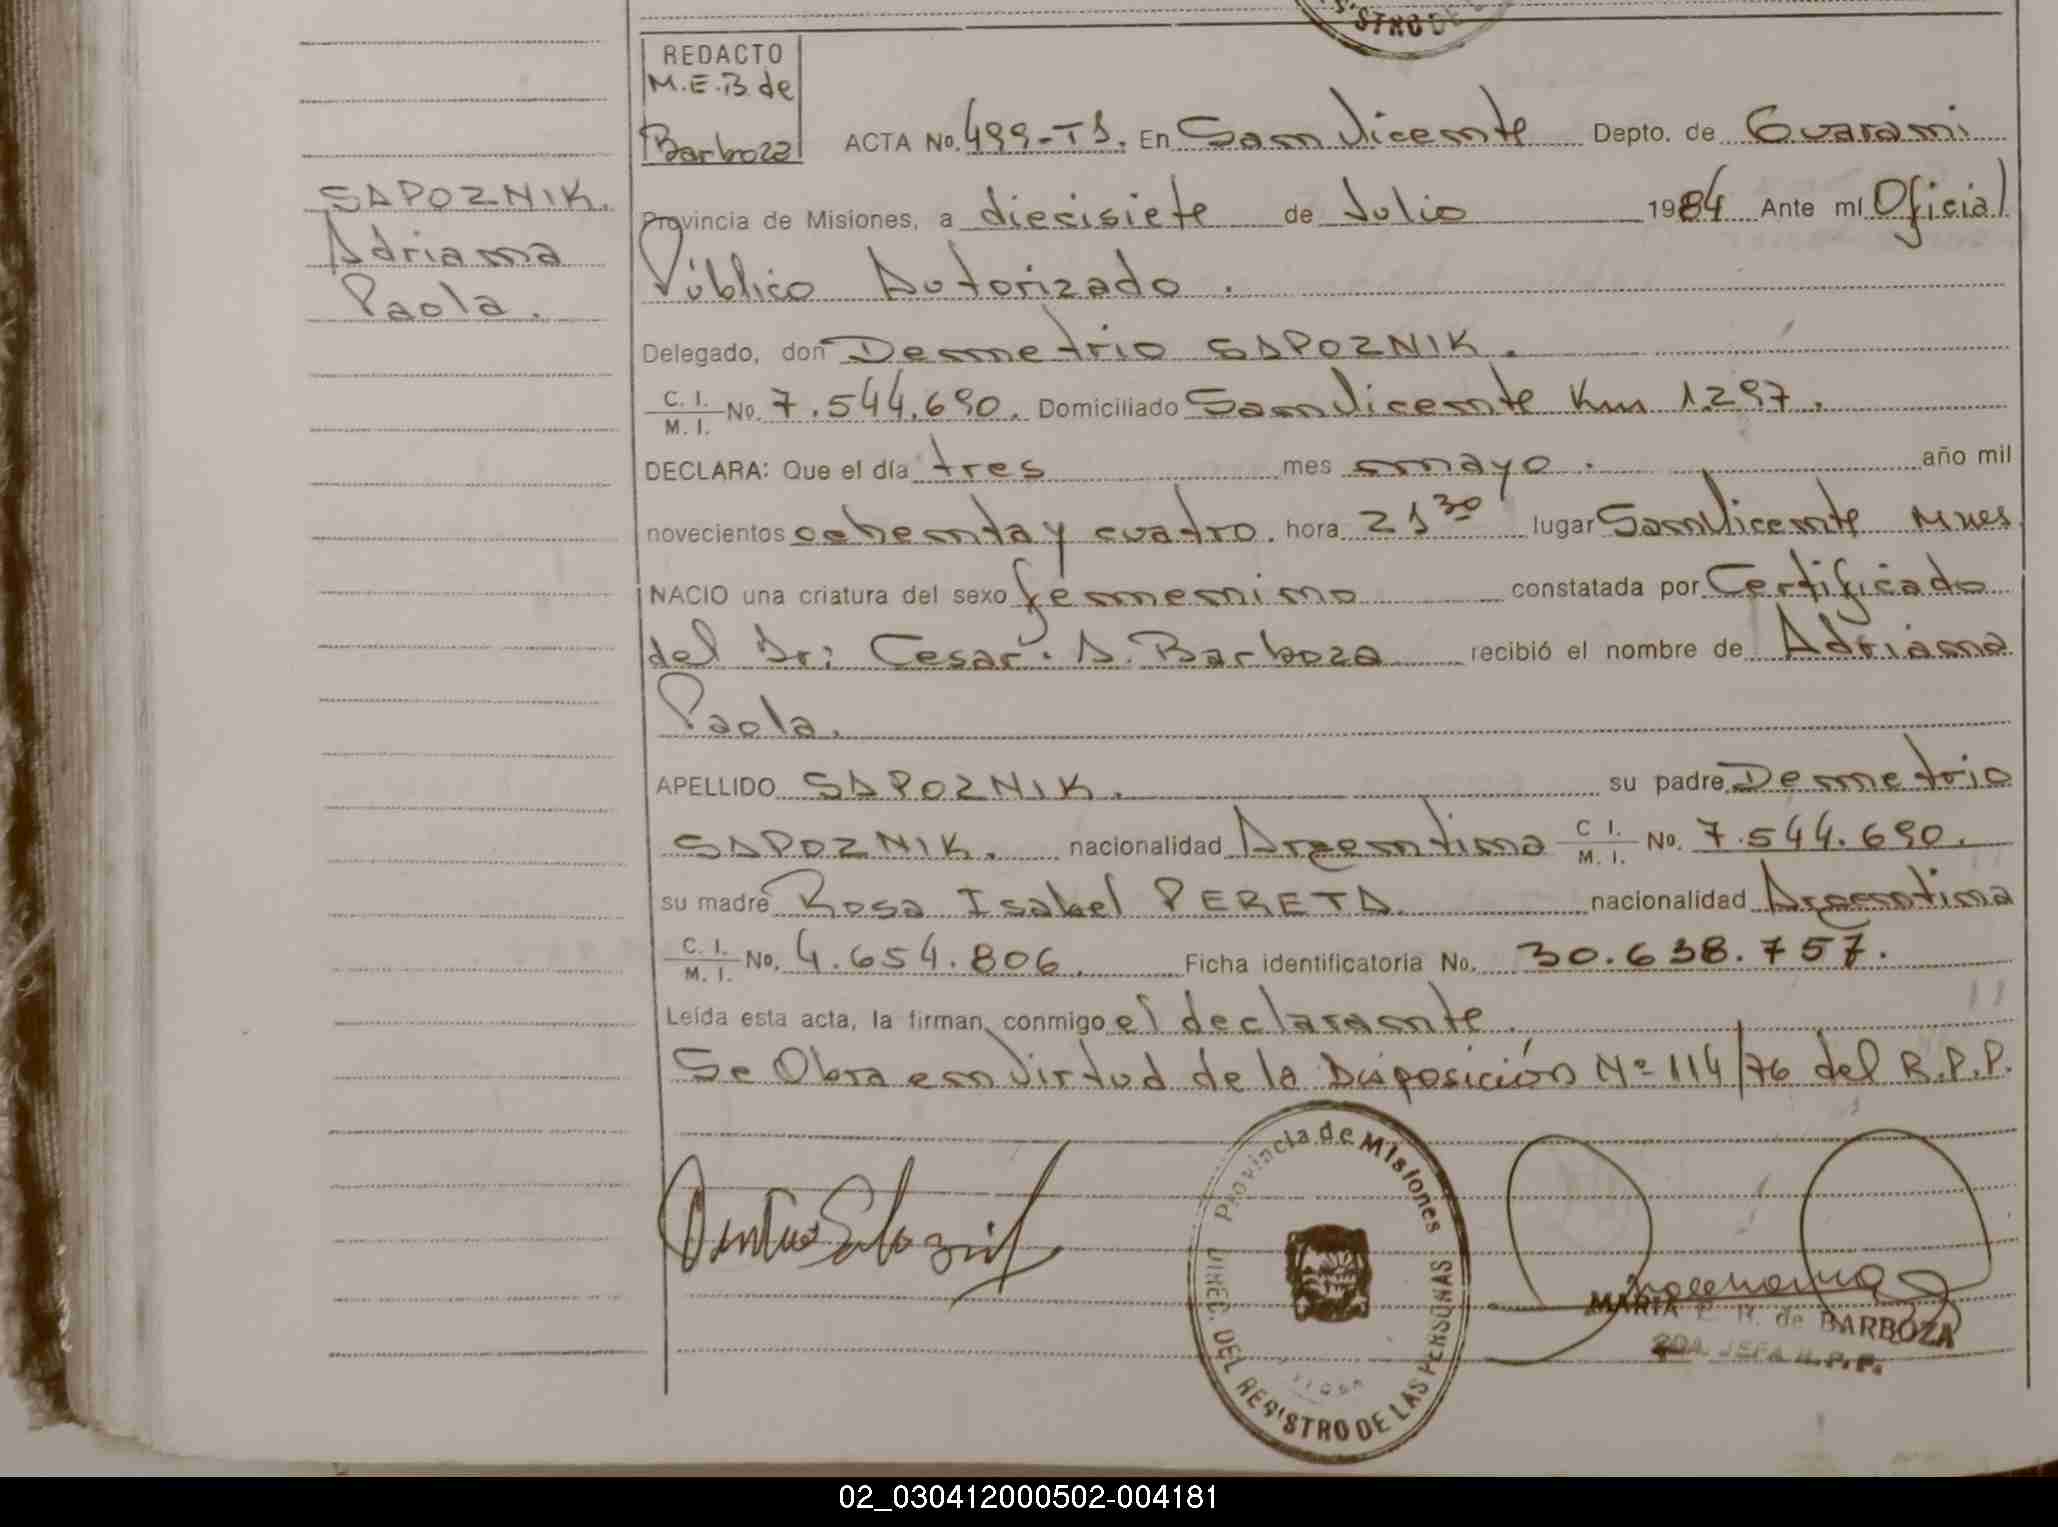 REDACTO
M.E.B. de
Barboza
ACTA No. 499-T1. En San Vicente Depto. de Guarani
SAPOZNIK.
Adriana
Paola.
Provincia de Misiones, a diecisiete de Julio 1984 Ante mí Oficial
Público Autorizado.
Delegado, don Demetrio SAPOZNIK.
C. I. / M. I. No. 7.544.690. Domiciliado San Vicente Km 1.297.
DECLARA: Que el día tres mes mayo. año mil
novecientos ochenta y cuatro. hora 21 30 lugar San Vicente Mnes
NACIO una criatura del sexo femenino constatada por Certificado
del Dr: Cesar. A. Barboza recibió el nombre de Adriana
Paola.
APELLIDO SAPOZNIK. su padre Demetrio
SAPOZNIK. nacionalidad Argentina C I. / M. I. No. 7.544.690.
su madre Rosa Isabel PERETA. nacionalidad Argentina
C. I. / M. I. No. 4.654.806. Ficha identificatoria No. 30.638.757.
Leída esta acta, la firman conmigo el declarante.
Se Obra en Virtud de la Disposición Nº 114/76 del R.P.P.
Provincia de Misiones
DIREC. DEL REGISTRO DE LAS PERSONAS
MARIA E. B. de BARBOZA
2DA. JEFA R.P.P.
02_030412000502-004181